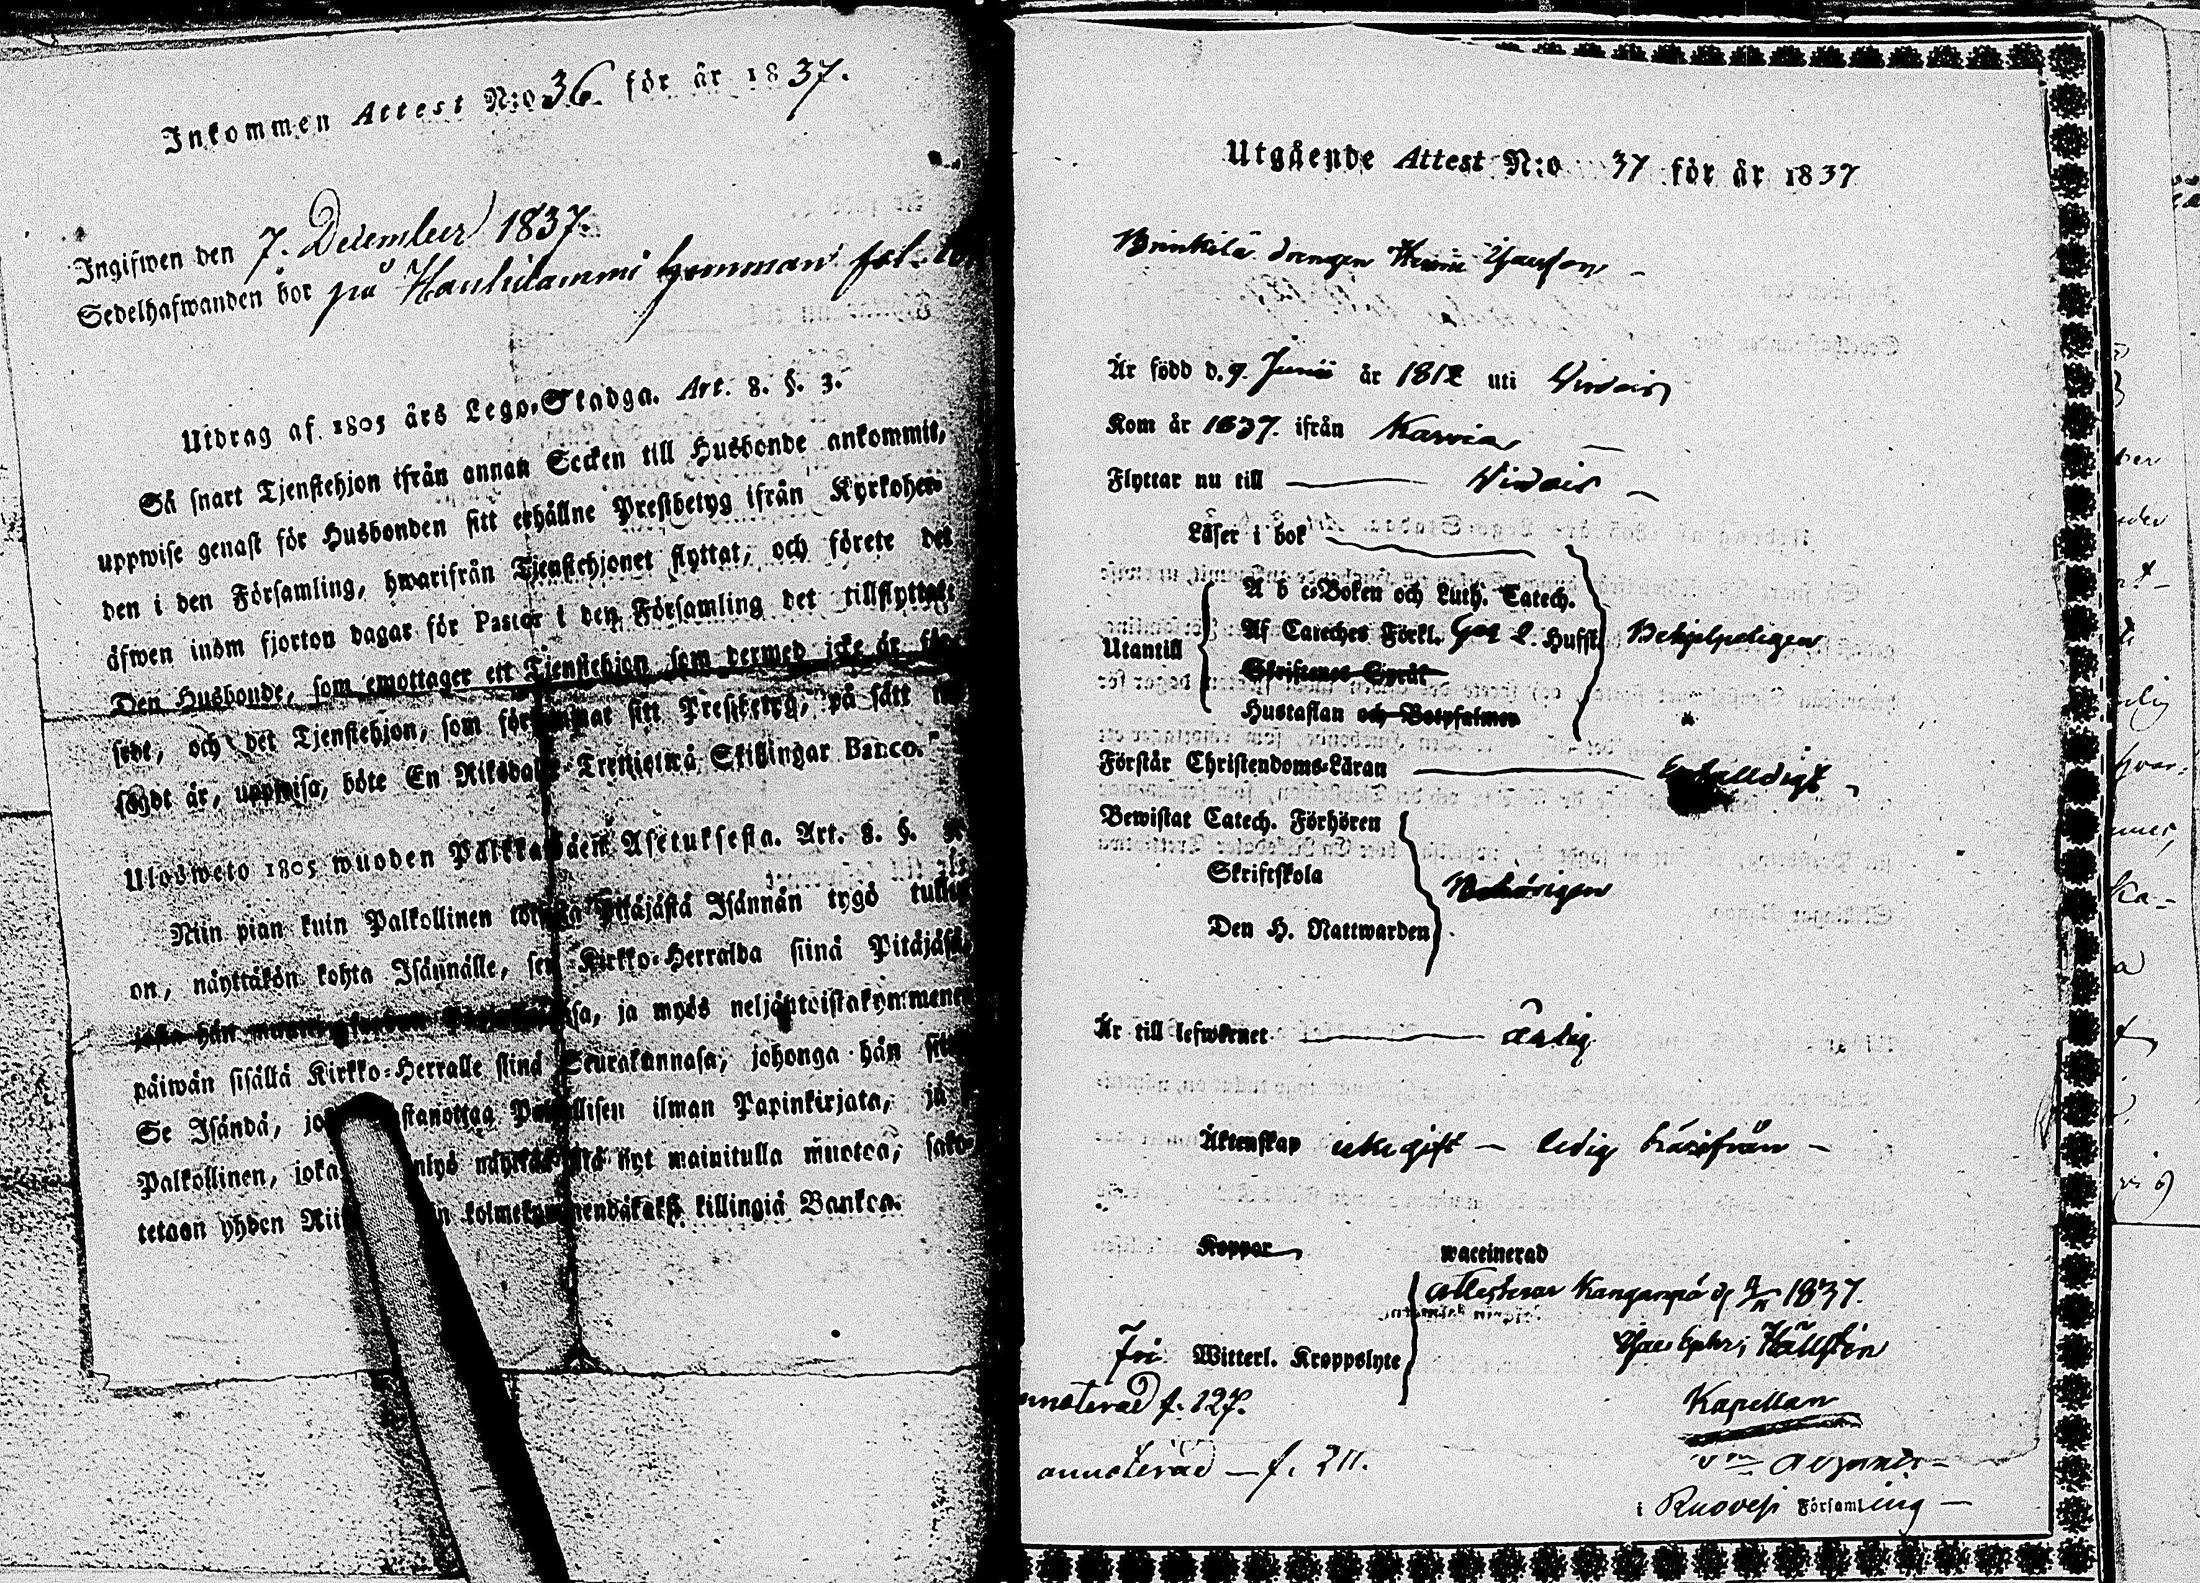 Inkommen Attest N:o 36. för år 1837.
Ingifwen den 7. December 1837.
Sedelhafwanden bor på Hauhilammi hemman fol.
Utdrag af 1805 års Lego-Stadga. Art. 8. §. 3.
Så snart Tjenstehjon ifrån annan Socken till Husbonde ankommit,
uppwise genast för Husbonden sitt erhållne Prestbetyg ifrån Kyrkoher-
den i den Församling, hwarifrån Tjenstehjonet flyttat, och förete det
äfwen inom fjorton dagar för Pastor i den Församling det tillflyttat.
Den Husbonde, som emottager ett Tjenstehjon som dermed icke är för-
sedt, och det Tjenstehjon, som försummat sitt Prestbetyg, på sätt
sagdt är, uppwisa, böte En Riksdaler Trettiotwå Skillingar Banco.
Ulosweto 1805 wuoden Palkkawäen Asetuksesta. Art. 8. §.
Niin pian kuin Palkollinen toisesta Pitäjästä Isännän tygö tullut
on, näyttäkön kohta Isännälle, sen Kirkko-Herralda siinä Pitäjäsä,
josta hän ja myös neljäntoistakymmenen
päiwän sisällä Kirkko-Herralle siinä Seurakunnasa, johonga hän
Se Isändä, joka wastanottaa Palkollisen ilman Papinkirjata, ja
Palkollinen, joka nyt mainitulla muotoa, sako-
tetaan yhden kolmekymmendäkaksi killingiä Bankoa.
Utgående Attest N:o 37 för år 1837
Brinkilä drengen Henric Isacsson
Är född d. 9. Junii år 1812 uti Virdois
Kom år 1837. ifrån Karvia
Flyttar nu till Virdois
Läser i bok
Utantill
A b c-Boken och Luth. Catech.
Af Cateches Förkl. 2. Hufst. Behjelpeligen
Skriftenes Språk
Hustaflan och Botpsalmer
Förstår Christendoms-Läran Enfalldigt
Bewistat Catech. Förhören
Skriftskola Behörigen
Den H. Nattwarden
Är till lefwernet ärlig
Äktenskap icke gift - ledig härifrån -
Koppor waccinerad
attesterar Kangarpää 1837.
Fri Witterl. Kroppslyte
Hällstén
annoterad f. 127.
Kapellan
annoterad - f. 211.
i Ruovesi Församling -